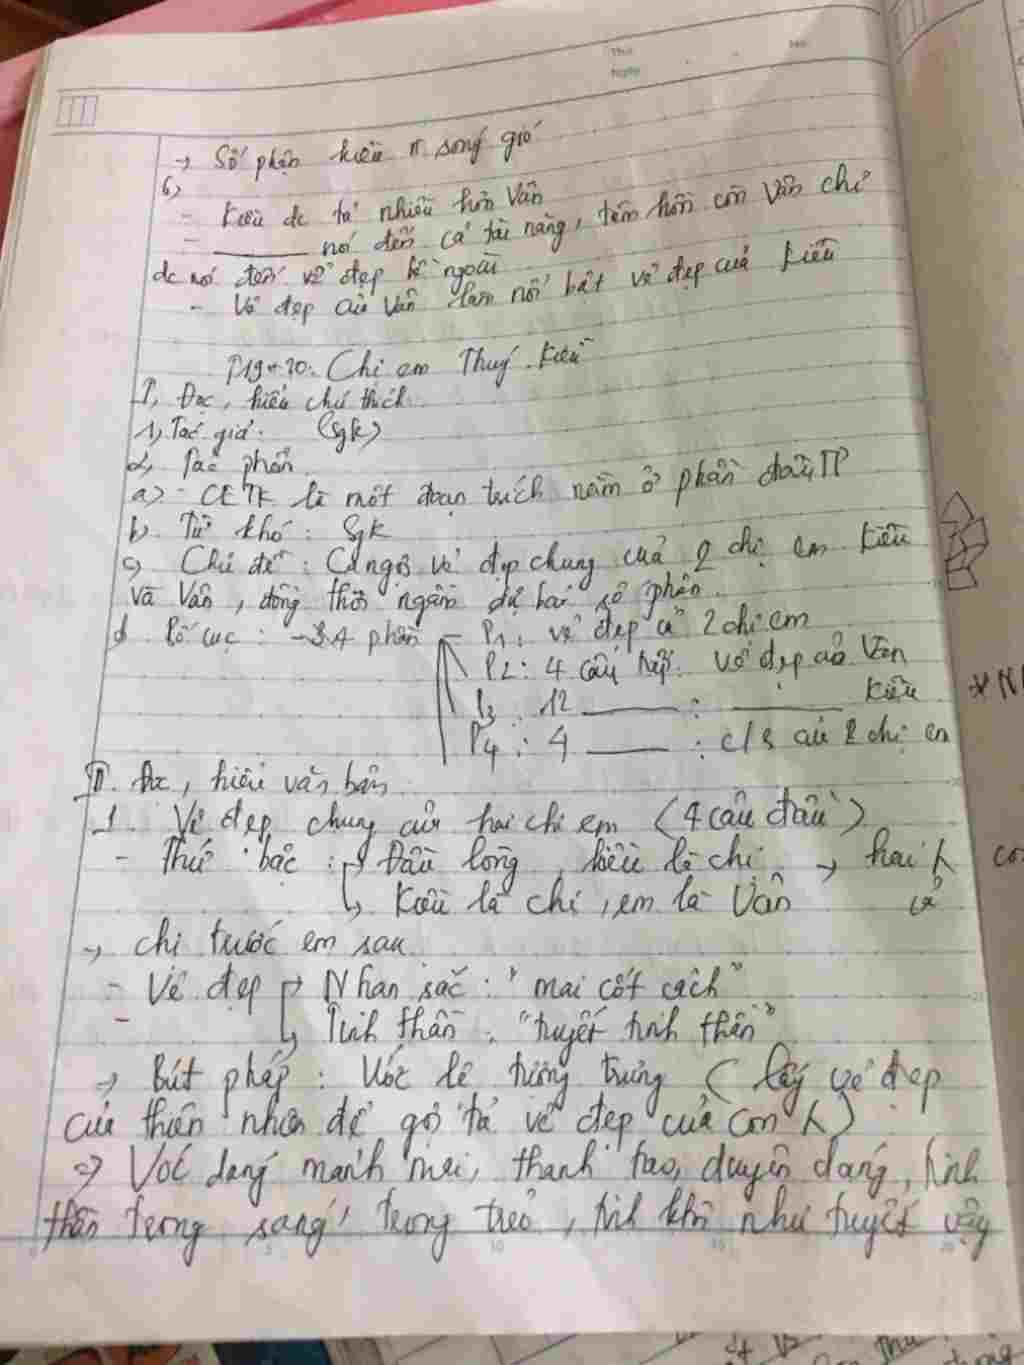 Thứ
Ngày
No.
→ Số phận kiều n sóng gió
6)
- Kiều dc tả nhiều hơn Vân
- ______ nói đến cả tài năng, tâm hồn còn Vân chỉ
dc nói đến vẻ đẹp bề ngoài
- Vẻ đẹp của Vân làm nổi bật vẻ đẹp của Kiều
P19+20: Chị em Thuý Kiều
I, Đọc, hiểu chú thích
1, Tác giả: (Sgk)
2, Tác phẩm
a) - CETK là một đoạn trích nằm ở phần đầu TP
b. Từ khó: Sgk
c) Chủ đề: Ca ngợi vẻ đẹp chung của 2 chị em Kiều
và Vân, đồng thời ngầm dự báo số phận.
d Bố cục: 4 phần P1: vẻ đẹp củ 2 chị em
P2: 4 câu tiếp: vẻ đẹp của Vân
P3: 12 ______ : ______ Kiều
P4: 4 ______ : c/s của 2 chị em
II. Đọc, hiểu văn bản
1. Vẻ đẹp chung của hai chị em (4 câu đầu)
- Thứ bậc: → Đầu lòng, kiều là chị → hai
↳ Kiều là chị, em là Vân
→ chị trước em sau
- Vẻ đẹp → Nhan sắc: "mai cốt cách"
↳ Tinh thần: "tuyết tinh thần"
→ Bút pháp: Ước lệ tượng trưng (lấy vẻ đẹp
của thiên nhiên để gợi tả vẻ đẹp của con)
=> Vóc dáng mảnh mai, thanh tao, duyên dáng, tinh
thần trong sáng, trong trẻo, tinh khôi như tuyết vậy